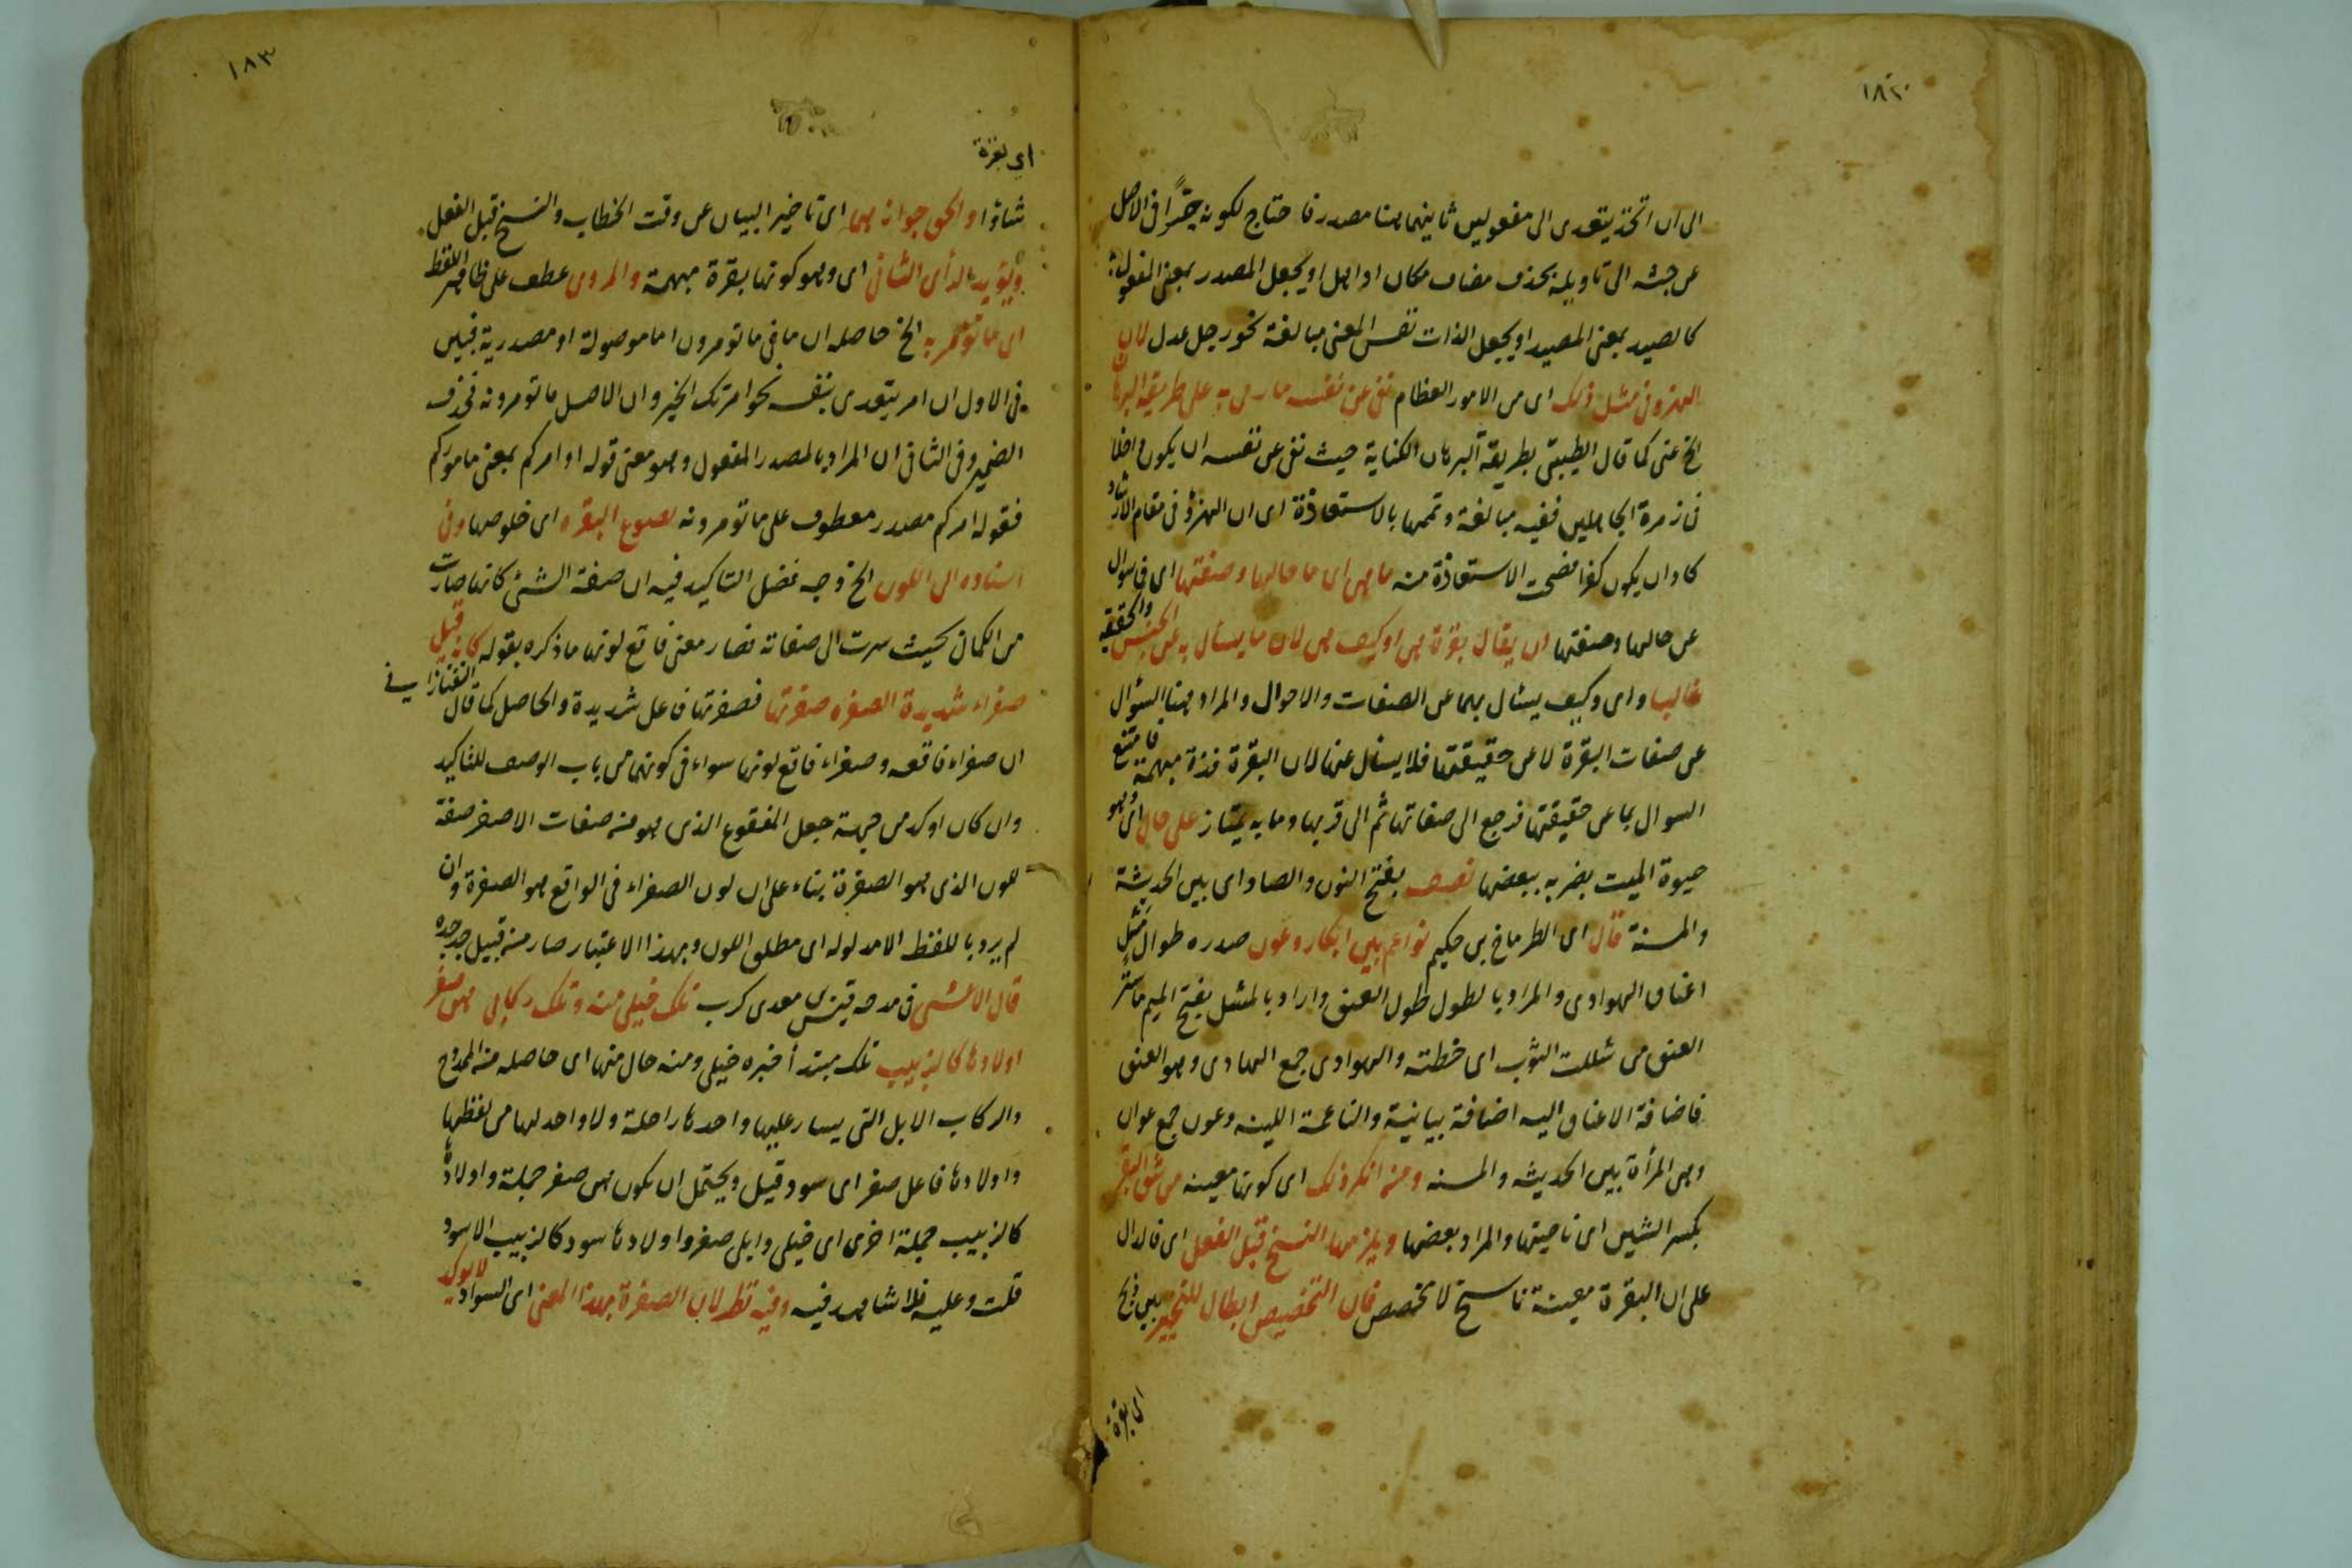 ١٨٢
الى ان اتخذ يتعدى الى مفعولين ثانيهما هنا مصدر فاحتاج لكونه خبرًا فى الاصل
عن جثه الى تاويله بحذف مضاف مكان او اهل او يجعل المصدر بمعنى المفعول
كالصيد بمعنى المصيد او يجعل الذات نفس المعنى مبالغة نحو رجل عدل لان
الهزو فى مثل ذلك اى من الامور العظام نفى عن نفسه ما رمى به على طريقة البرهان
الخ عنى كما قال الطيبى بطريقة البرهان الكناية حيث نفى عن نفسه ان يكون داخلا
فى زمرة الجاهلين ففيه مبالغة وتممها بالاستعاذة اى ان الهزؤ فى مقام الارشاد
كاد ان يكون كفرا فصحت الاستعاذة منه ما هى اى ما حالها وصفتها اى فى سؤال
عن حالها وصفتها ان يقال بقرة هى او كيف هى لان ما يسأل به عن الجنس والحقيقة
غالبا واى وكيف يسئال بهما عن الصفات والاحوال والمراد هنا السؤال
عن صفات البقرة لا عن حقيقتها فلا يسئل عنها لان البقرة فذة مبهمة فامتنع
السوال بما عن حقيقتها فرجع الى صفاتها ثم الى قربها وما به يمتاز على حال اى وهو
حيوة الميت بضربه ببعضها نصف بفتح النون والصاد اى بين الحديثة
والمسنة قال اى الطرماخ بن حكيم نواعم بين ابكار وعون صدره طوال مثل
اعناق الهوادى والمراد بالطول طول العنق واراد بالمثل بفتح الميم ما ستر
العنق من شللت الثوب اى خطته والهوادى جمع الهادى وهو العنق
فاضافة الاعناق اليه اضافة بيانية والناعمة اللينه وعون جمع عوان
وهى المرأة بين الحديثه والمسنه ومن انكر ذلك اى كونها معينه من شق البقر
بكسر الشين اى ناحيتها والمراد بعضها ويلزمها النسخ قبل الفعل اى فالدال
على ان البقرة معينة ناسخ لا مخصص فان التخصيص ابطال للتخيير بين ذبح
اى بقرة
١٨٣
اي بقرة
شاؤا والحق جوازهما اى تاخير البيان عن وقت الخطاب والنسخ قبل الفعل
ويؤيد الرأى الثانى اى وهو كونها بقرة مبهمة والمروى عطف على ظاهر اللفظ
اى ما تؤمر به الخ حاصله ان ما فى ما تومرون اما موصولة او مصدرية فبين
فى الاول ان امر يتعدى بنفسه نحو امرتك الخير وان الاصل ما تومرونه فحذف
الضمير وفى الثانى ان المراد بالمصدر المفعول وهو معنى قوله او امركم بمعنى ماموركم
فقوله امركم مصدر معطوف على ما تومرونه نصوع البقره اى خلوصها وفى
اسناده الى اللون الخ وجه فضل التاكيد فيه ان صفة الشئ كانها صارت
من الكمان بحيث سرت الى صفاته فصار معنى فاقع لونها ما ذكره بقوله كانه قيل
صفراء شديدة الصفره صفرتها فصفرتها فاعل شديدة والحاصل كما قال التفتازانى
ان صفراء فاقعه وصفراء فاقع لونها سواء فى كونهما من باب الوصف للتاكيد
وان كان اوكد من جهة جعل الفقوع الذى هو من صفات الاصفر صفة
للون الذى هو الصفرة بناء على ان لون الصفراء فى الواقع هو الصفرة وان
لم يرد باللفظ الا مدلوله اى مطلق اللون وبهذا الاعتبار صار من قبيل جد جده
قال الاعشى فى مدحه قيس معدى كرب تلك خيلى منه وتلك ركابى هن صفر
اولادها كالزبيب تلك مبتدأ خبره خيلى ومنه حال منها اى حاصله من الممدوح
والركاب الابل التى يسار عليها واحدها راحلة ولا واحد لها من لفظها
واولادها فاعل صفر اى سود قيل ويحتمل ان يكون هن صفر جملة واولادها
كالزبيب جملة اخرى اى خيلى وابلى صفر واولادها سود كالزبيب الاسود
قلت وعليه فلا شاهد فيه وفيه نظر لان الصفرة بهذا المعنى اى السواد لا يوكد